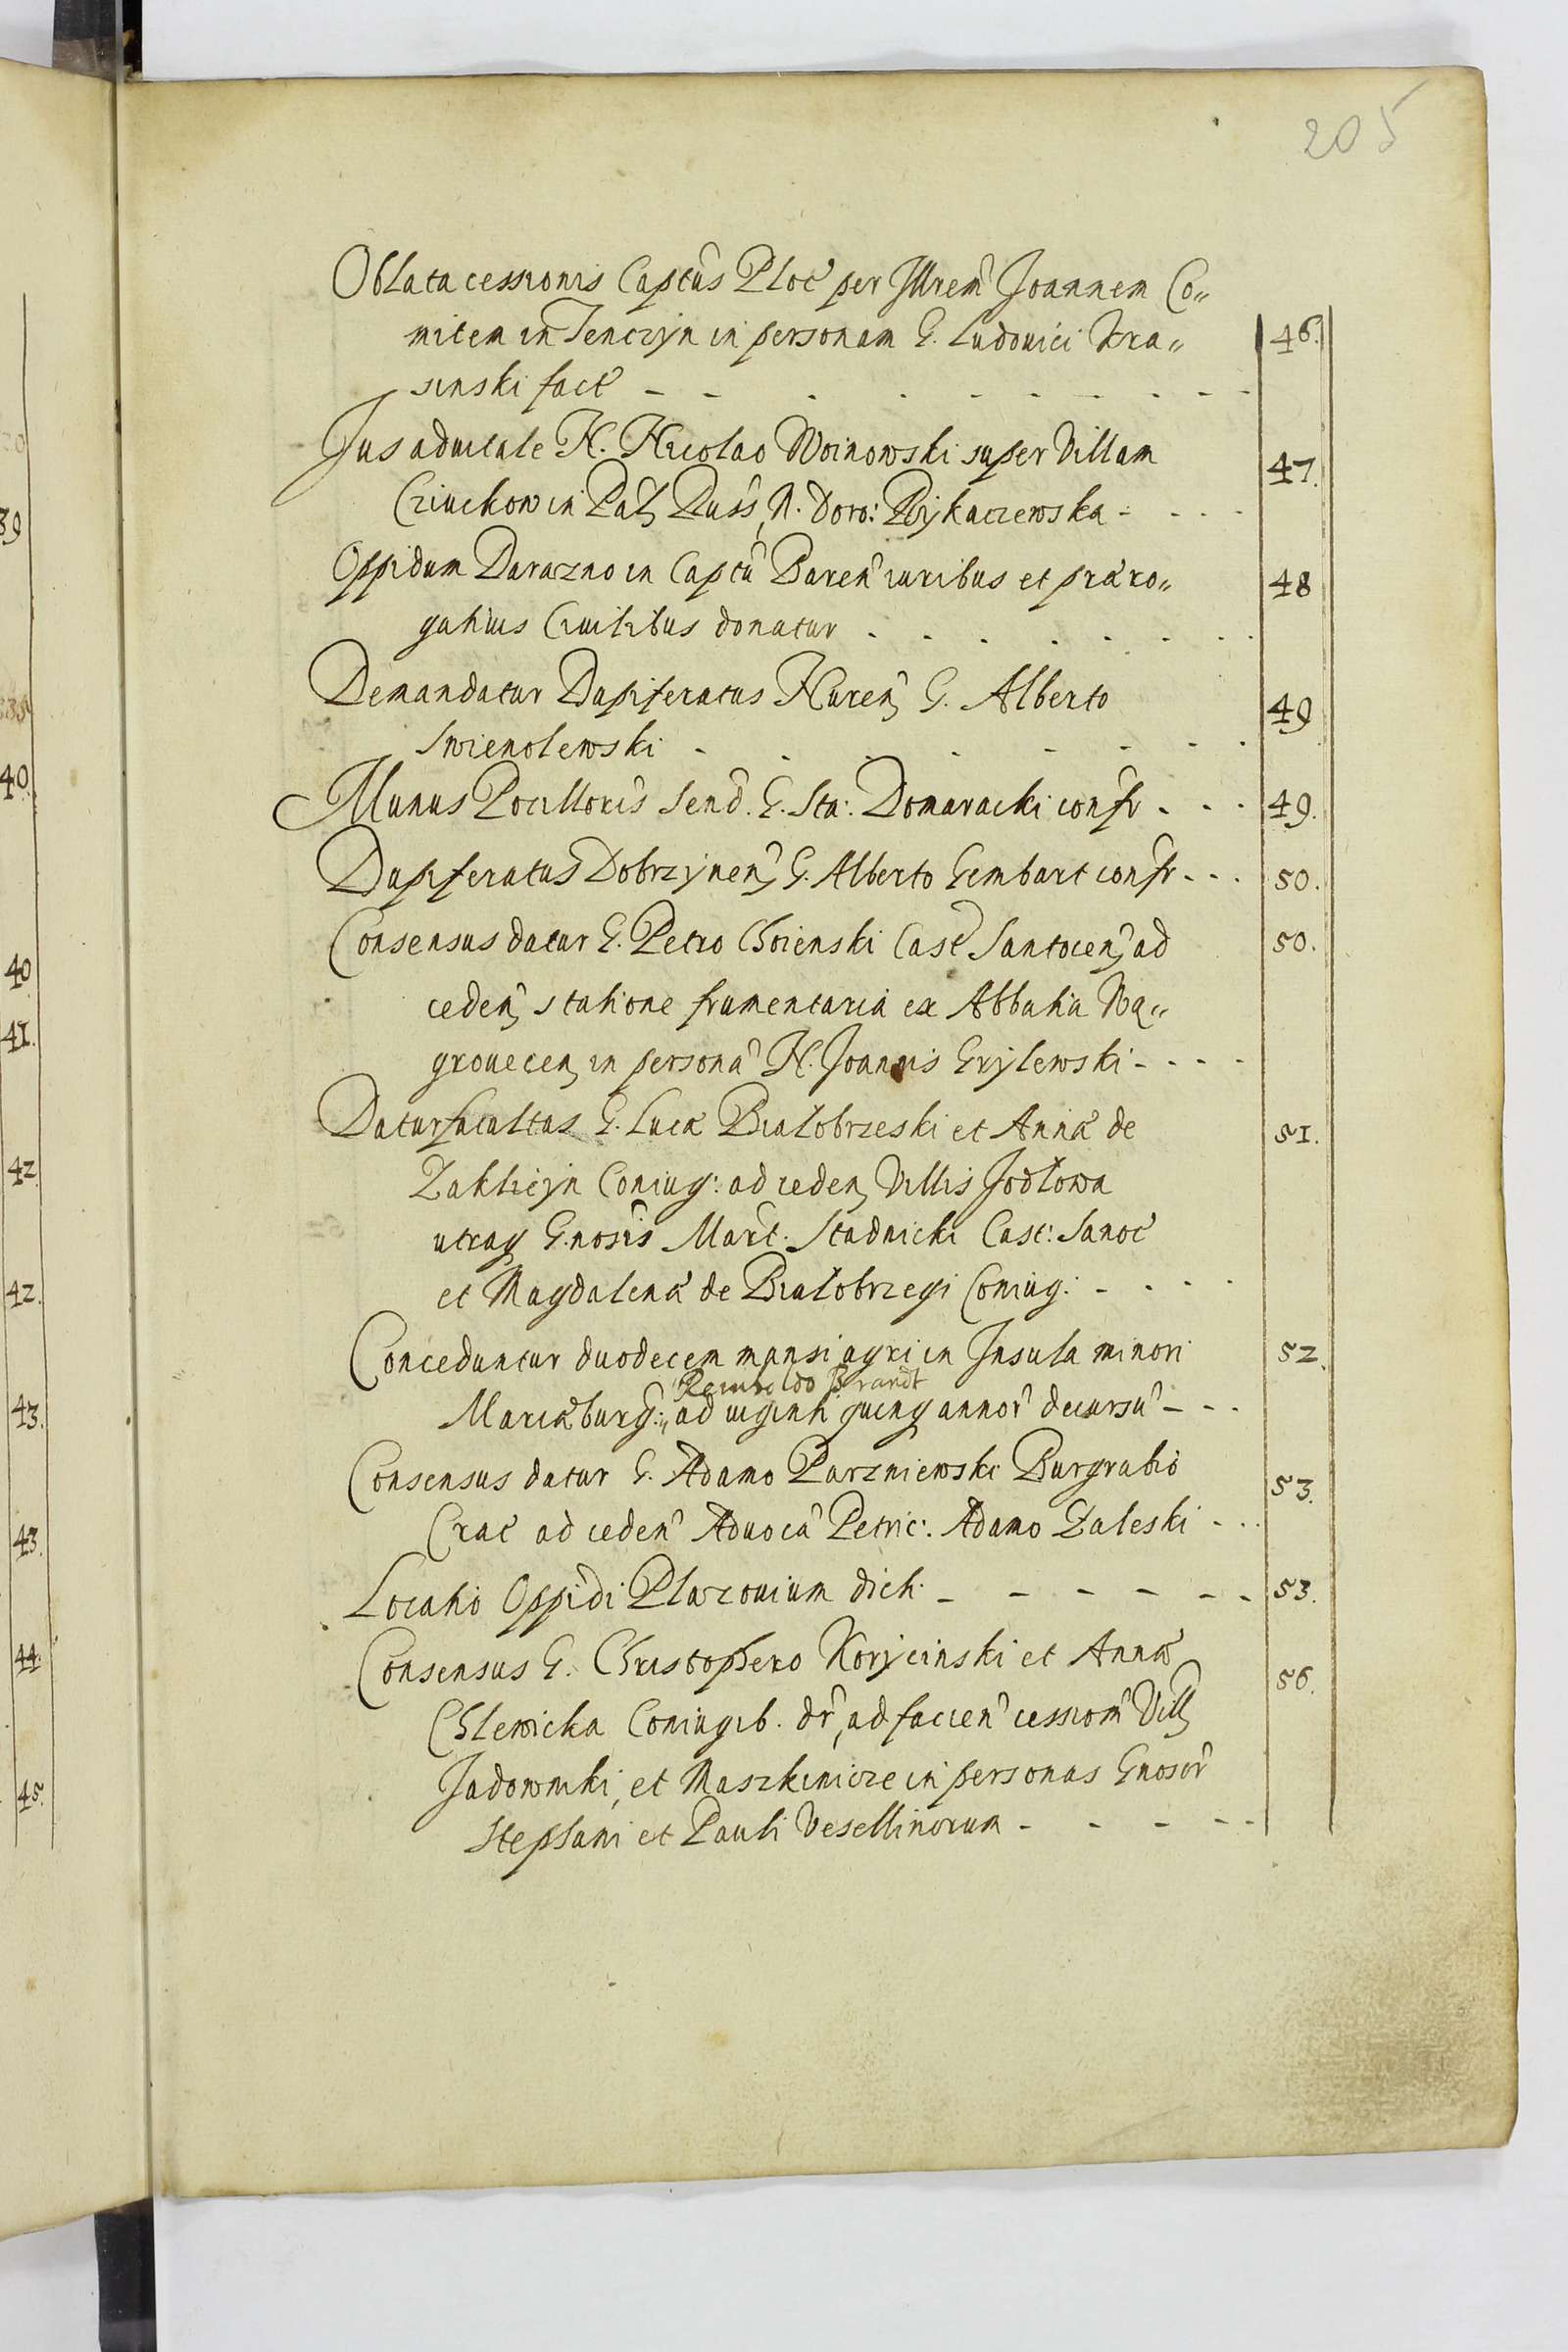 205
Oblata cessionis Captus Ploc per Illrem Joannem Co„
mitem in Tenczyn in personam G. Ludovici Kra„
sinski fact - - - 46.
Jus advitale N. Nicolao Woinowski super Villam
Cziuckow in Pal Russ, N. Doro: Pykaczewska - - - 47.
Oppidum Darazno in Captu Baren iuribus et præro„
gativis Civilibus donatur . . . 48
Demandatur Dapiferatus Huren G. Alberto
Swienolewski - - - 49
Munus Pocilloris Send. G. Sta: Domaracki confr - - - 49.
Dapiferatus Dobrzynen G. Alberto Gembart confr - - - 50.
Consensus datur G. Petro Choienski Cast Santocen ad 50.
ceden statione frumentaria ex Abbatia Wa„
grovecen in persona N. Joannis Grylewski - - - -
Datur facultas G. Lucæ Białobrzeski et Annæ de 51.
Zakliczyn Coniug: ad ceden Villis Jodłowa
utraq G.nosis Mart. Stadnicki Cast: Sanoc
et Magdalenæ de Białobrzegi Coniug: - - - -
Conceduntur duodecem mansi agri in Insula minori 52.
Reinholdo Brandt
Mariæburg: „ ad viginti quinq annor decursu - - -
Consensus datur G. Adamo Parzniewski Burgrabio 53.
Crac ad ceden Advoca Petric: Adamo Zaleski - - -
Locatio Oppidi Plazovium dicti - - - 53.
Consensus G. Christophero Korycinski et Annæ 56.
Chlewicka Coniugib. dr, ad facien cession Vill
Jadowniki, et Maszkinicze in personas Gnosor
Stephani et Pauli Vesellinorum - - - -
39
40
40
41.
42
42.
43.
43.
44.
45.